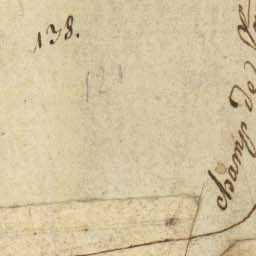 138.
121
champ de